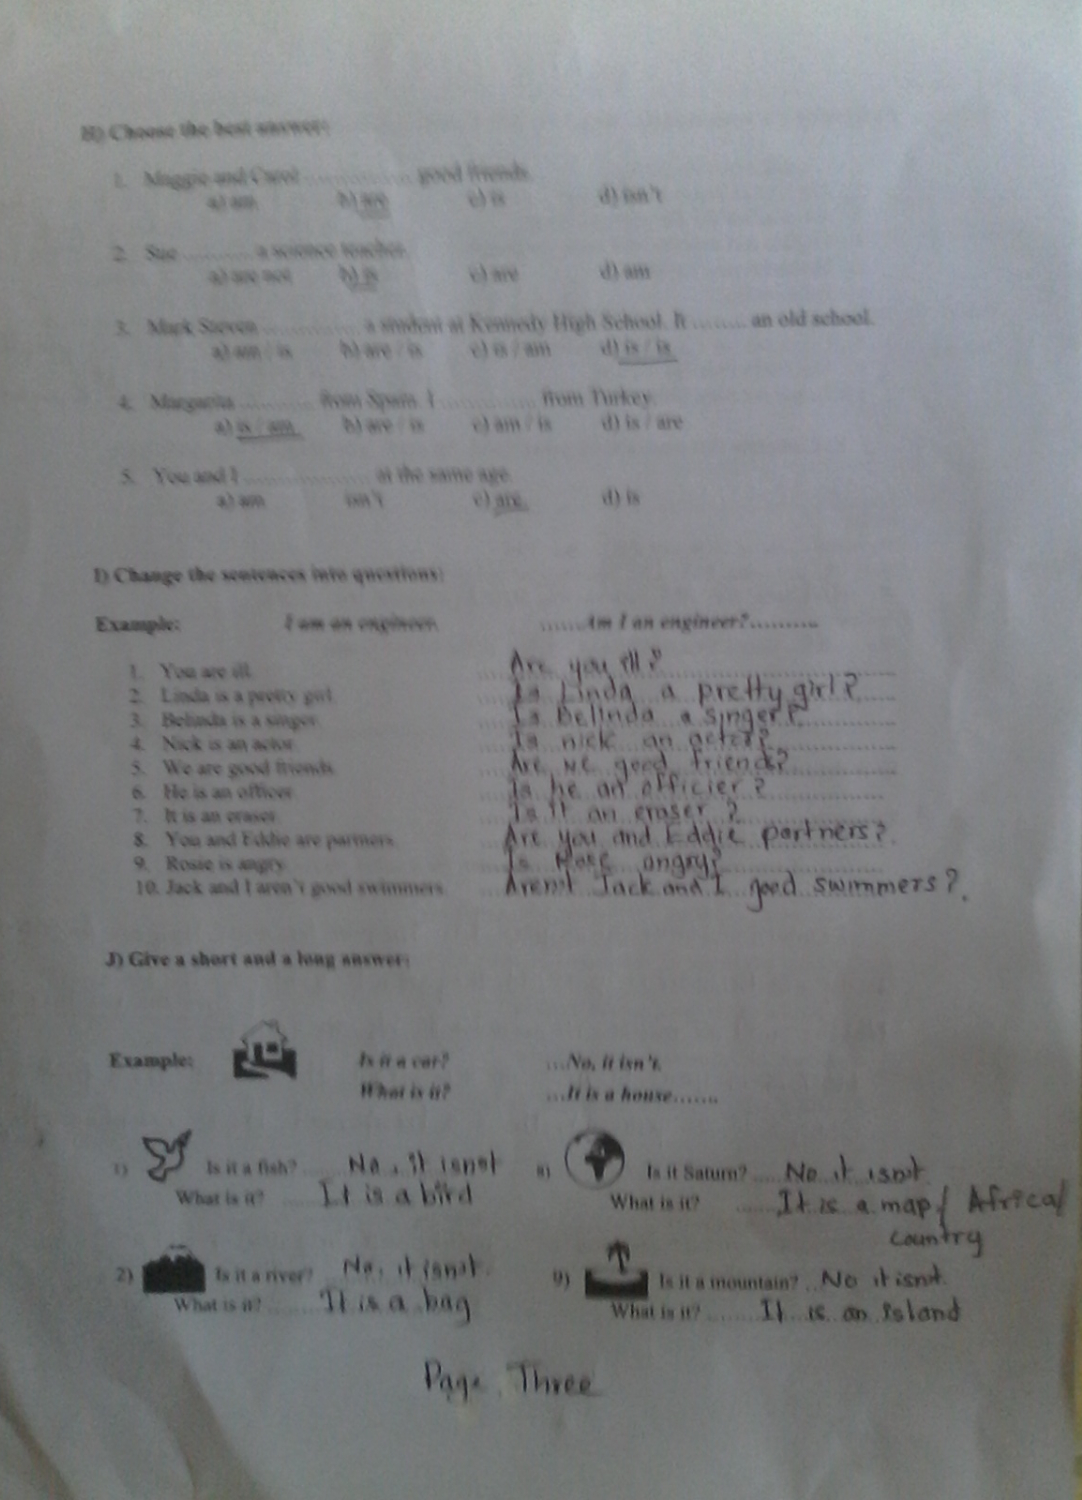 H) Choose the best answer:
1. Maggie and Carol .............. good friends.
a) am b) are c) is d) isn't
2. Sue .......... a science teacher.
a) are not b) is c) are d) am
3. Mark Steven .............. a student at Kennedy High School. It ........ an old school.
a) am / is b) are / is c) is / am d) is / is
4. Margarita ............ from Spain. I .............. from Turkey.
a) is / am b) are / is c) am / is d) is / are
5. You and I .................. at the same age.
a) am isn't c) are d) is
I) Change the sentences into questions:
Example: I am an engineer. ......Am I an engineer?..........
1. You are ill. Are you ill?
2. Linda is a pretty girl. Is Linda a pretty girl?
3. Belinda is a singer. Is Belinda a singer?
4. Nick is an actor. Is nick an actor?
5. We are good friends. Are we good friends?
6. He is an officer. Is he an officier?
7. It is an eraser. Is it an eraser?
8. You and Eddie are partners. Are you and Eddie partners?
9. Rosie is angry. Is angry?
10. Jack and I aren't good swimmers. Aren't Jack and I good swimmers?.
J) Give a short and a long answer:
Example: Is it a car? ...No, it isn't.
What is it? ...It is a house.......
1) Is it a fish? ...... No, it isnot 8) Is it Saturn? ..... No it isnot
What is it? ...... It is a bird What is it? ....... It is a map/ Africa/
country
2) Is it a river? No, it isnot. 9) Is it a mountain? .. No it isnot.
What is it? ....... It is a bag What is it? ....... It is an island
Page Three